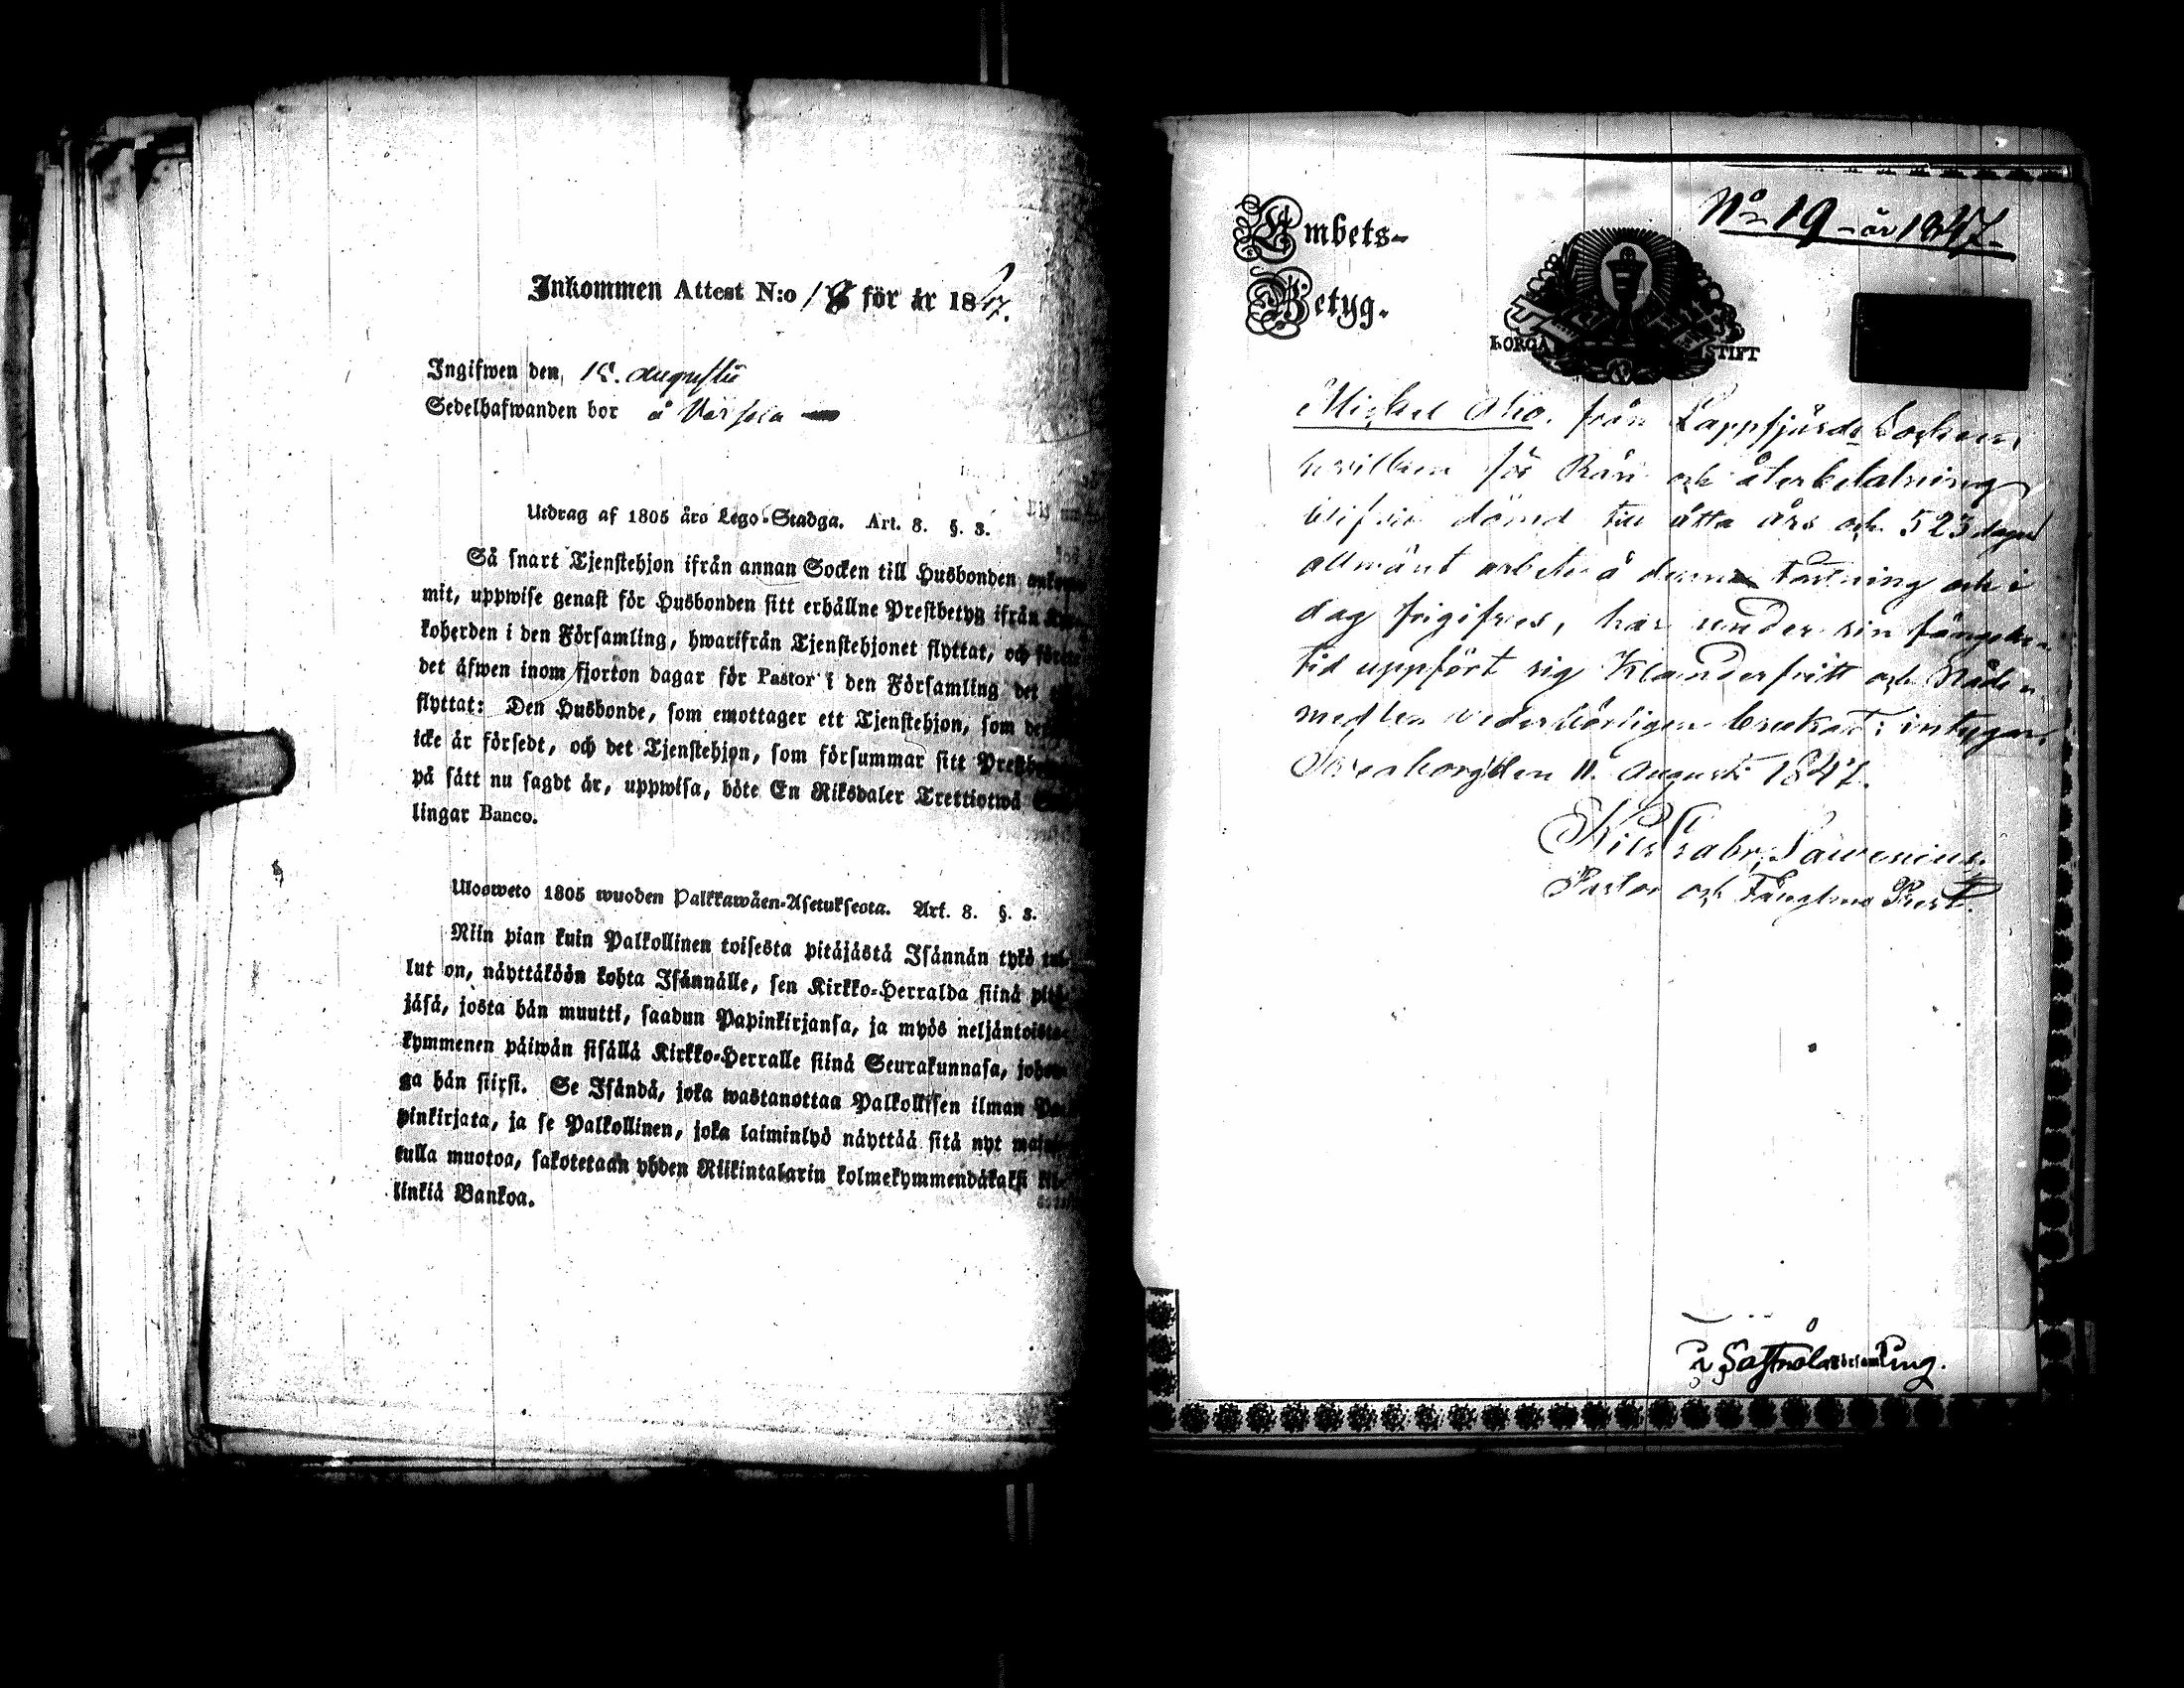 Inkommen Attest N:o 18 för år 1847.
Ingifwen den 15. Augusti
Sedelhafwanden bor å
Utdrag af 1805 års Lego-Stadga. Art. 8. §. 3.
Så snart Tjenstehjon ifrån annan Socken till Husbonden
mit, uppwise genast för Husbonden sitt erhållne Prestbetyg ifrån
koherden i den Församling, hwarifrån Tjenstehjonet flyttat, och
det äfwen inom fjorton dagar för Pastor i den Församling det
flyttat: Den Husbonde, som emottager ett Tjenstehjon, som
icke är försedt, och det Tjenstehjon, som försummar sitt
på sätt nu sagdt är, uppwisa, böte En Riksdaler Trettiotwå
lingar Banco.
Ulosweto 1805 wuoden Palkkawäen-Asetuksesta. Art. 8. §. 3.
Niin pian kuin Palkollinen toisesta pitäjästä Isännän tykö
lut on, näyttäköön kohta Isännälle, sen Kirkko-Herralda siinä
jäsä, josta hän muutti, saadun Papinkirjansa, ja myös neljäntoista-
kymmenen päiwän sisällä Kirkko-Herralle siinä Seurakunnasa, johon-
ga hän siirsi. Se Isändä, joka wastanottaa Palkollisen ilman
pinkirjata, ja se Palkollinen, joka laiminlyö näyttää sitä nyt
tulla muotoa, sakotetaan yhden Riikintalarin kolmekymmendäkaksi
linkiä Bankoa.
No 19 - år 1847.
Embets-
Betyg.
BORGÅ STIFT
Michel Aho. från Lappfjärds Socken,
hwilken för Rån och återbetalning
blifwit dömd till åtta års och 523 dagars
allmänt arbete å denna Fästning och i
dag frigifves, har under sin fängelse-
tid uppfört sig Klanderfritt och Nåde-
medlen wederbörligen brukat; intygar,
Sveaborg den 11. Augusti 1847.
Pastor och Fånge Prest.
i Sastmola Församling.